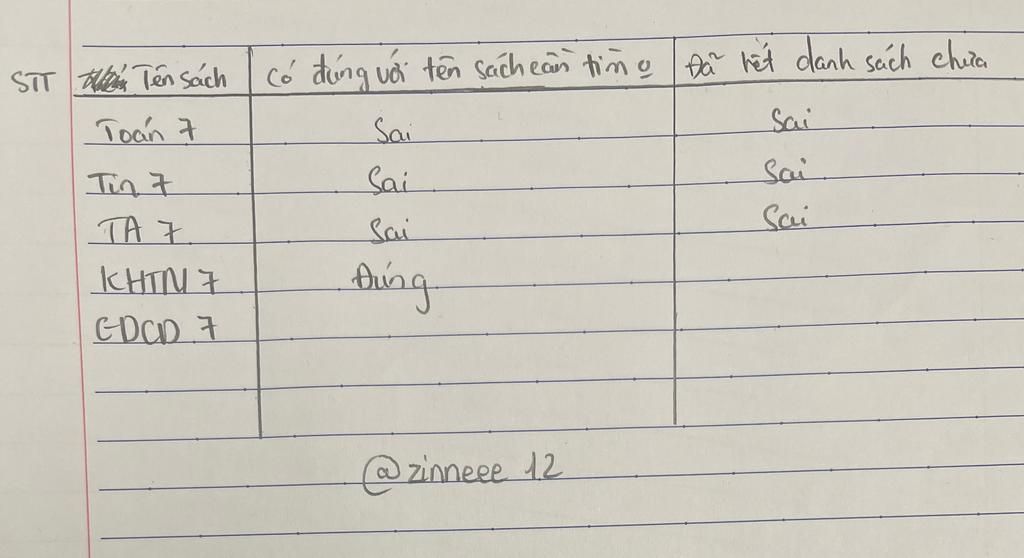 STT Tên sách Có đúng với tên sách cần tìm o Đã hết danh sách chưa
Toán 7 Sai Sai
Tin 7 Sai Sai
TA 7 Sai Sai
KHTN 7 Đúng
GDCD 7
@zinneee 12